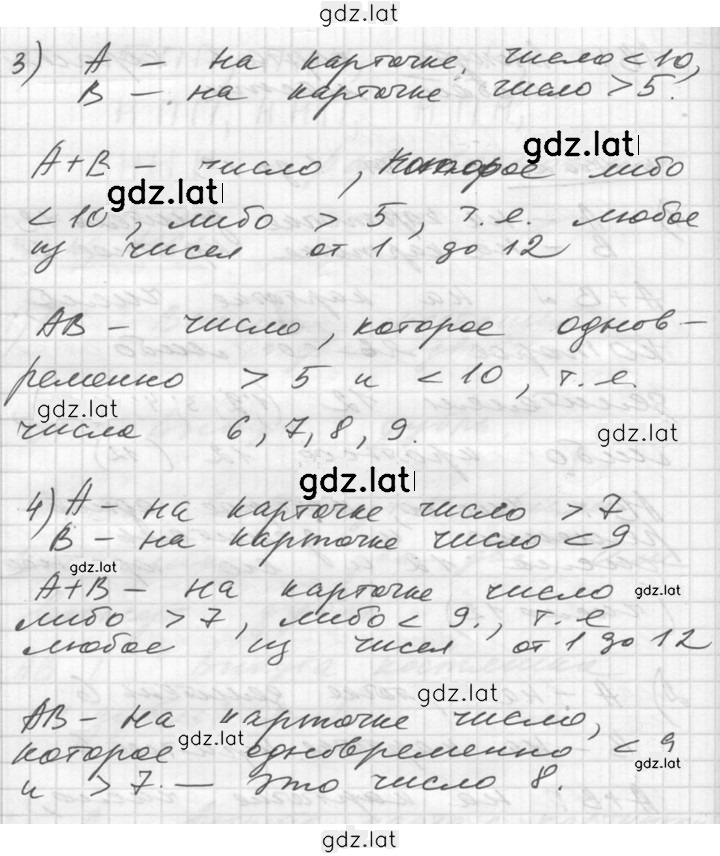 gdz.lat
3) А – на карточке число < 10,
В – на карточке число > 5.
gdz.lat
А+В – число, которое либо
gdz.lat
< 10, либо > 5, т.е. любое
из чисел от 1 до 12
АВ – число, которое однов-
ременно > 5 и < 10, т.е.
gdz.lat
числа 6, 7, 8, 9.
gdz.lat
gdz.lat
4) А – на карточке число > 7
В – на карточке число < 9
gdz.lat
А+В – на карточке число
gdz.lat
либо > 7, либо < 9., т.е
любое из чисел от 1 до 12
gdz.lat
АВ – на карточке число,
gdz.lat
которое одновременно < 9
gdz.lat
и > 7. — это число 8.
gdz.lat